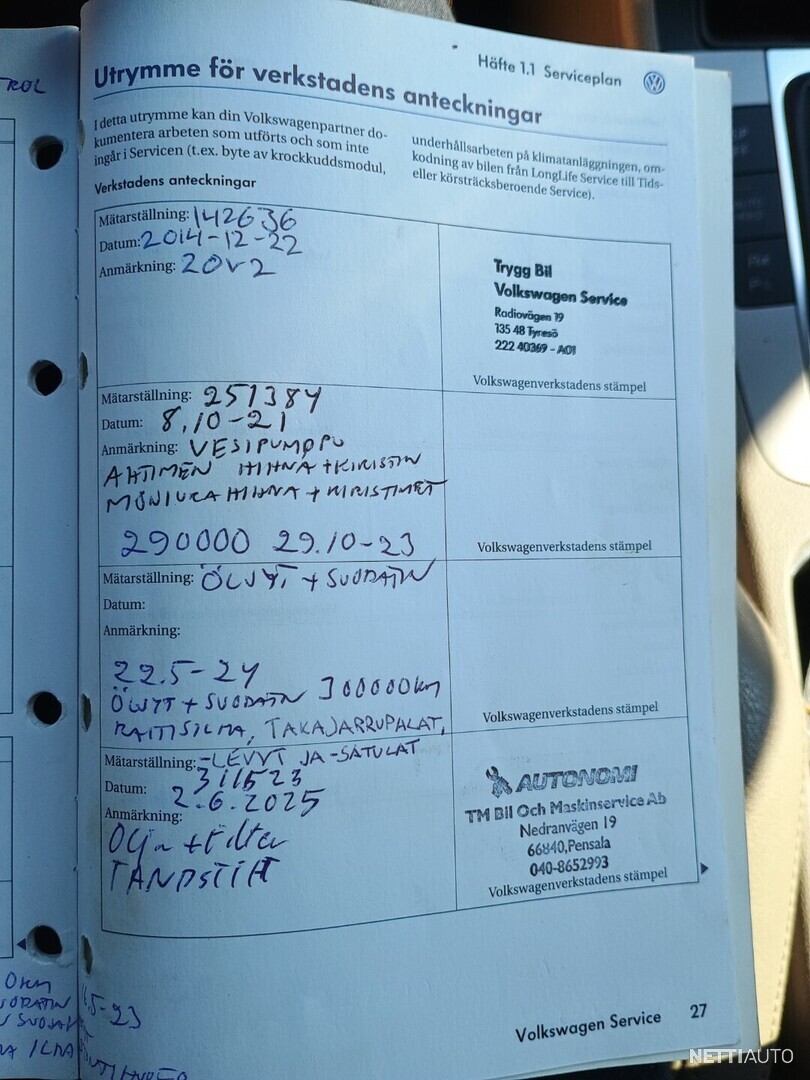 TROL
Häfte 1.1 Serviceplan
Utrymme för verkstadens anteckningar
I detta utrymme kan din Volkswagenpartner do-
kumentera arbeten som utförts och som inte
ingår i Servicen (t.ex. byte av krockkuddsmodul,
underhållsarbeten på klimatanläggningen, om-
kodning av bilen från LongLife Service till Tids-
eller körsträcksberoende Service).
Verkstadens anteckningar
Mätarställning: 142636
Datum: 2014-12-22
Anmärkning: 20V2
Trygg Bil
Volkswagen Service
Radiovägen 19
135 48 Tyresö
222 40369 - A01
Volkswagenverkstadens stämpel
Mätarställning: 251384
Datum: 8.10-21
Anmärkning: VESIPUMPPU
AHTIMEN HIHNA + KIRISTIN
MONIURAHIHNA + KIRISTIMET
290000 29.10-23
Volkswagenverkstadens stämpel
Mätarställning: ÖLJYT + SUODATIN
Datum:
Anmärkning:
22.5-24
ÖLJYT + SUODATIN 300000km
RAITISILMA, TAKAJARRUPALAT,
Volkswagenverkstadens stämpel
Mätarställning: -LEVYT JA -SATULAT
311523
Datum: 2.6.2025
Anmärkning:
Olja + Filter
TÄNDSTIFT
AUTONOMI
TM Bil Och Maskinservice Ab
Nedranvägen 19
66840, Pensala
040-8652993
Volkswagenverkstadens stämpel
0km
5-23
ILMA
Volkswagen Service 27
NETTIAUTO